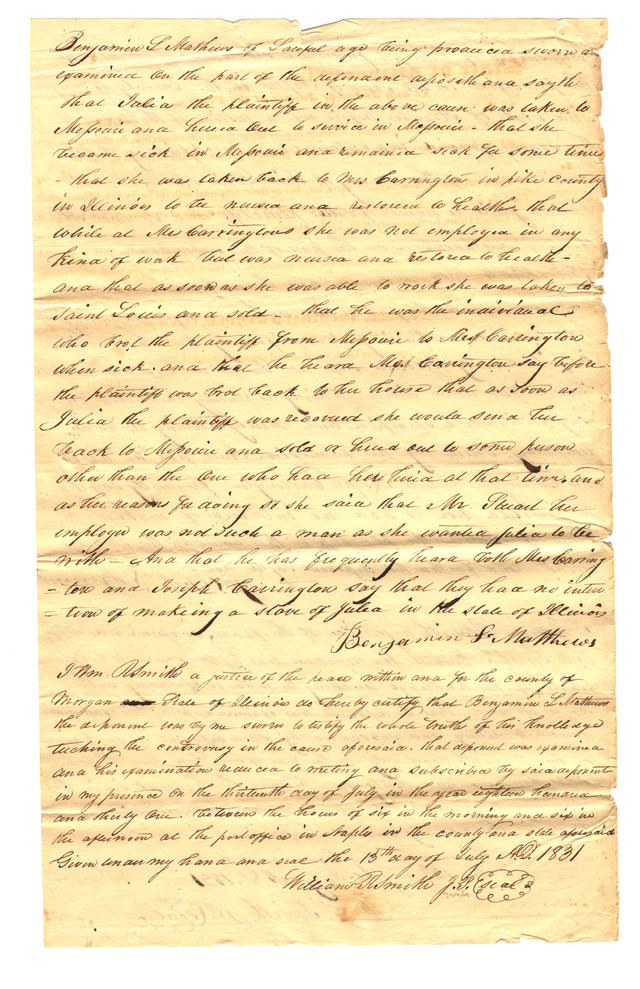 Benjamin L Mathews of Lawful age being produced sworn an
examined on the part of the defendent deposeth and sayth
that Julia the plaintiff in the above caus was taken to
Missouie and hired out to service in Missouie - that she
became sick in Missouie and remained sick for some time
- that she was taken back to Mrs Carringtons in pike county
in Illinois to be nursed and restored to health that
while at Mrs Carringtons she was not employed in any
kind of work but was nursed and restored to health -
and that as soon as she was able to work she was taken to
Saint Louis and sold - that he was the individual
who brot the plaintiff from Missouie to Mrs Carrington
when sick and that he heard Mrs Carington say before
the plaintiff was brot back to her house that as soon as
Julia the plaintiff was recovered she would send her
back to Missouie and sold or hired out to some person
other than the one who had her hired at that time and
as her reasons for doing so she said that Mr Stuart her
employer was not such a man as she wanted Julia to be
with - And that he has frequently heard both Mrs Caring
=ton and Joseph Carrington say that they had no inten
=tion of making a slave of Julia in the state of Illinois
Benjamin L. Matthews
I Wm R Smith a justice of the peace within and for the county of
Morgan State of Illinois do hereby certify that Benjamin L Mathews
the deponent was by me sworn to testify the whole truth of his knolledge
tuching the controversy in the cause aforesaid. that deponent was examined
and his examination reduced to writing and subscribed by said deponent
in my presence on the thirteenth day of July in the year eighteen hundred
and thirty one. between the hours of six in the morning and six in
the afternoon at the post office in Naples in the county and state aforesaid
Given under my hand and seal the 13th day of July A.D. 1831
William R Smith J.P. Seal